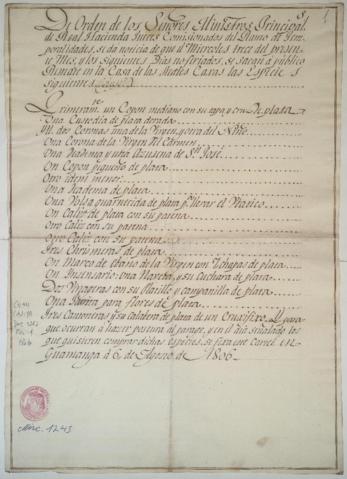 De Orden de los Señores Ministros Principal.s
de Real Hacienda Jueces Comicionados del Ramo de Tem-
poralidades, se da noticia de qe. el Miercoles trece del presen-
te Mes, y los siguientes Dias no feriados, se sacan a publico
Remate en la Casa de las Reales Caxas las Especies
siguientes
Primeramte. un Copon mediano con su capa y cruz De plata
Una Custodia de plata dorada
Yt. dos Coronas una de la Virgen, y otra del Niño
Una Corona de la Virgen del Cármen
Una Diadema y una Azusena de Sn. José
Un Copon piqueño de plata
Otro idem menor
Una Diadema de plata
Una Bolsa guarnecida de plata pa. llevar el Viatico
Un Caliz de plata con su patena
Otro Caliz con su patena
Otro Caliz con su patena
Tres Chrismeras de plata
Un Marco de la Virgen con chapas de plata
Un Insensario, Una Naveta, y su Cuchara de plata
Dos Vinageras con su Platillo y campanilla de plata
Una para flores de plata
Tres Cantoneras y su Calabera de plata de un Cruxifixo. Y para
que ocurran a hazer postura, y en el dia señalado los
que quisieren comprar dichas especies, se fixa este Cartel en
Guamanga à 6 de Agosto de 1806.
Misc. 1243